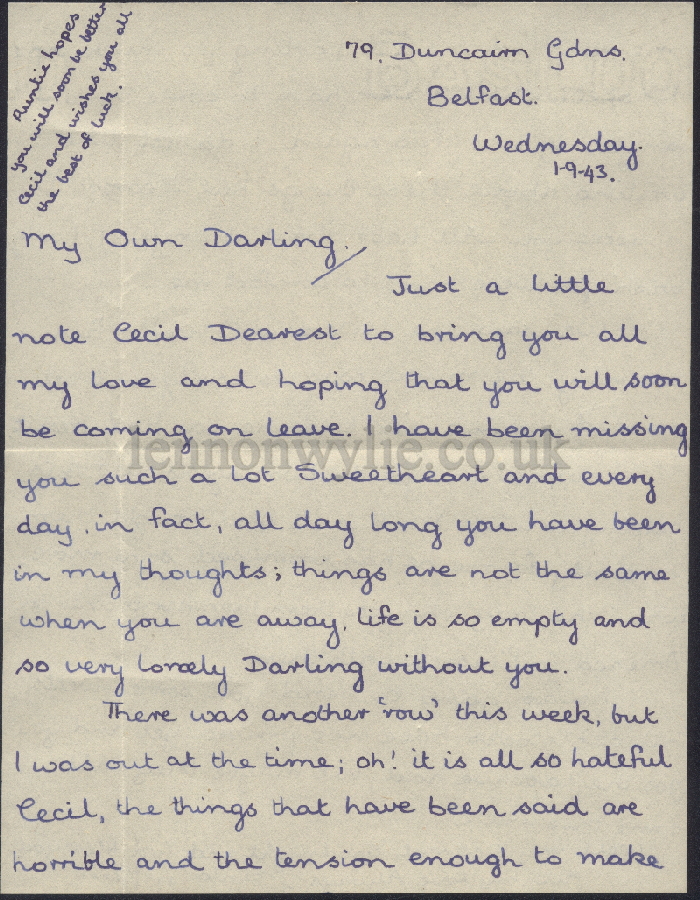 Auntie hopes
you will soon be better
Cecil and wishes you all
the best of luck.
79, Duncairn Gdns.
Belfast.
Wednesday.
1-9-43.
My Own Darling.
Just a little
note Cecil Dearest to bring you all
my love and hoping that you will soon
be coming on leave. I have been missing
lennonwylie.co.uk
you such a lot Sweetheart and every
day, in fact, all day long you have been
in my thoughts; things are not the same
when you are away, life is so empty and
so very lonely Darling without you.
There was another 'row' this week, but
I was out at the time; oh! it is all so hateful
Cecil, the things that have been said are
horrible and the tension enough to make